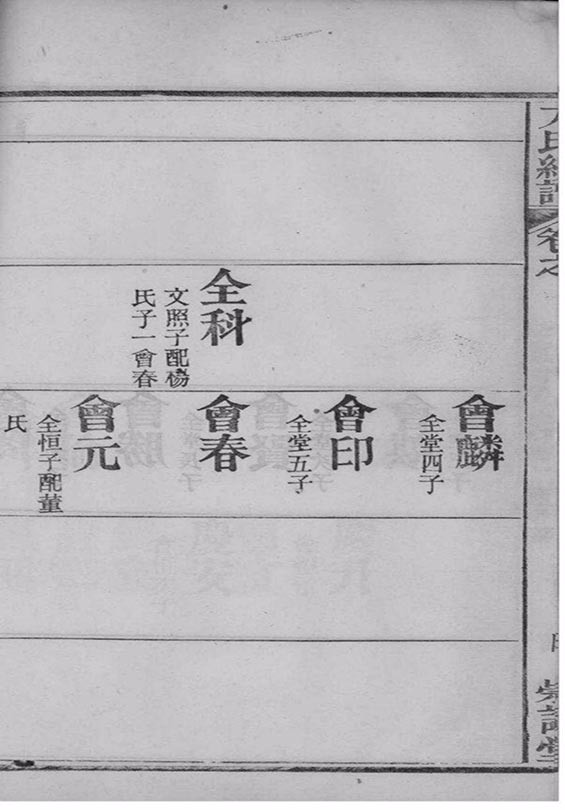 卷之
全科
文照子配楊
氏子一會春
會麟
全堂四子
會印
全堂五子
會春
會元
全恒子配董
氏